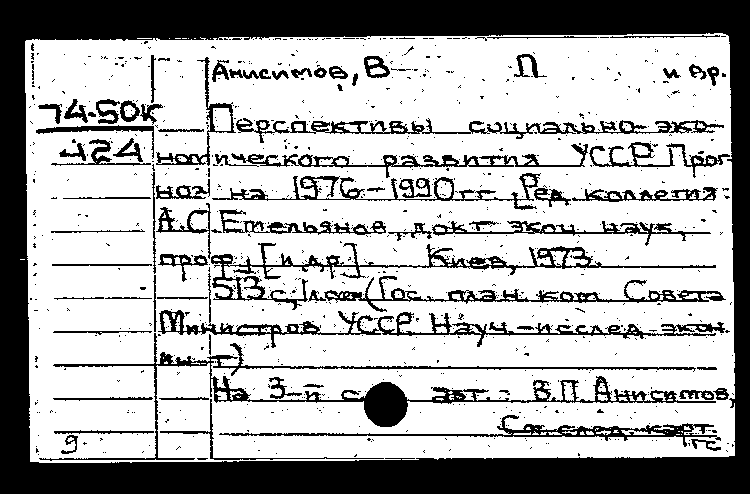 Анисимов, В П и др.
74-50к
Перспективы социально-эко-
424
номического развития УССР. Прог-
ноз на 1976-1990 гг. [Ред. коллегия:
А.С. Емельянов, докт. экон. наук,
проф., [и др.]. Киев, 1973.
513 с., (Гос. план. ком. Совета
Министров УССР. Науч.-исслед. экон.
ин-т)
На 3-й с авт.: В.П. Анисимов,
См. след. карт.
9.